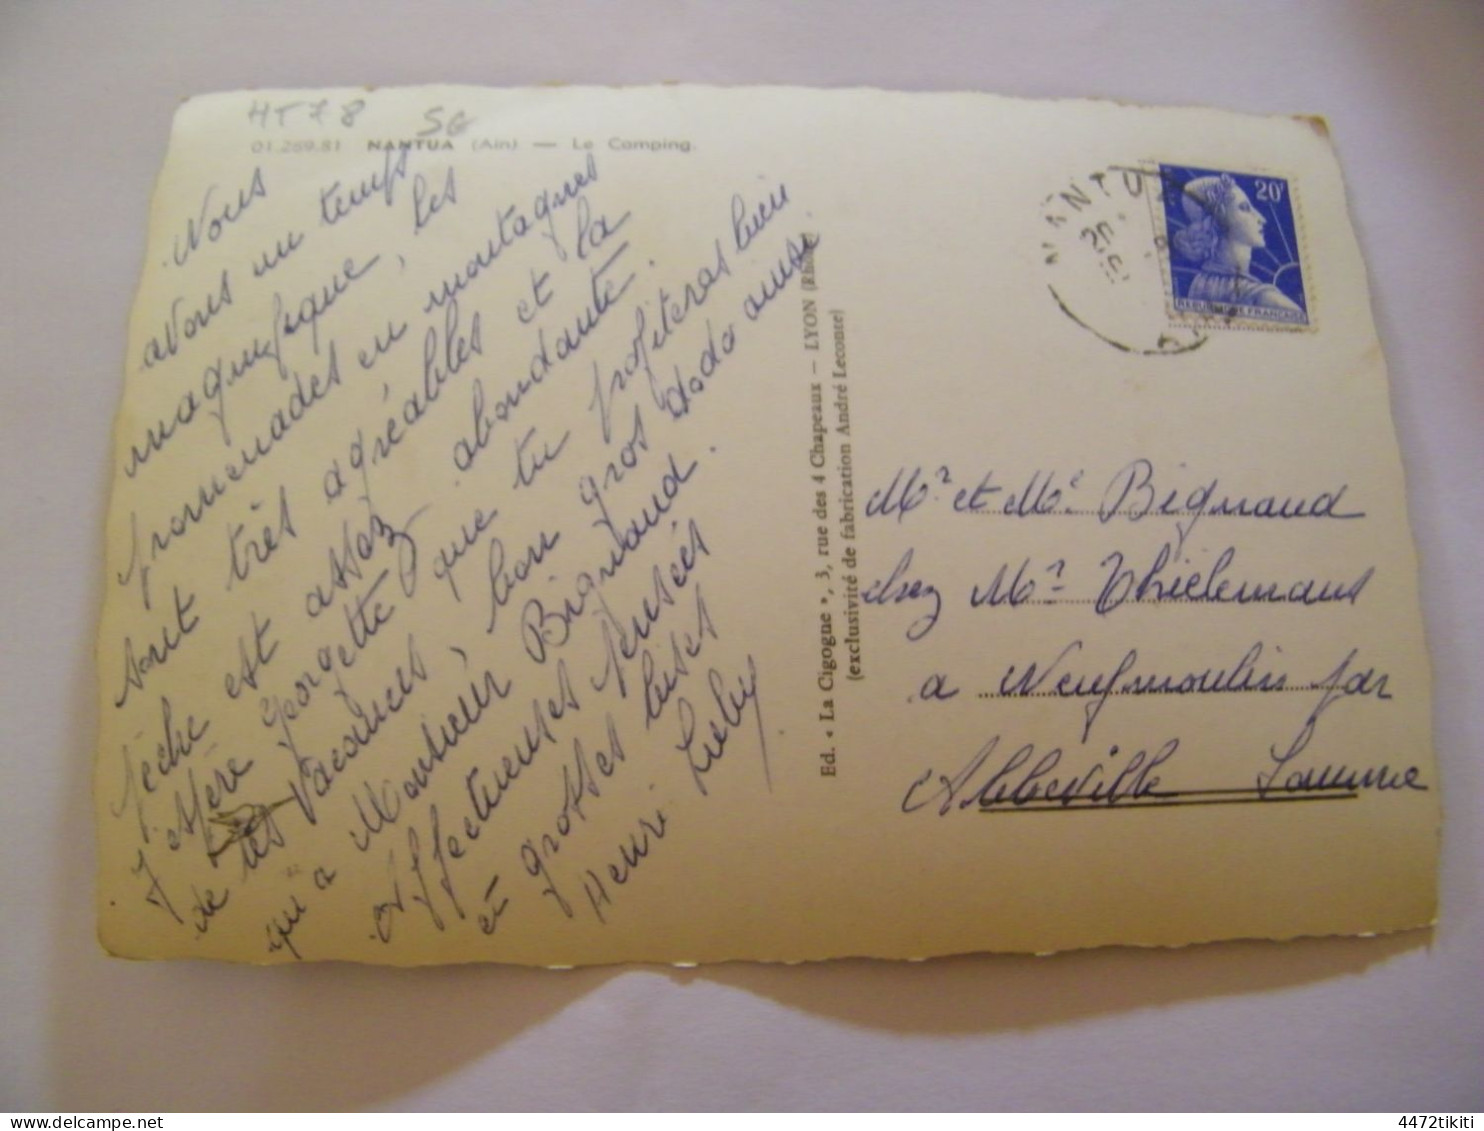 HT78 SG
01.269.81 NANTUA (Ain) — Le Camping.
Nous
avons un temps
magnifique, les
promenades en montagnes
sont très agréables et la
pêche est assez abondante.
J'espère Georgette que tu profiteras bien
de tes vacances, bon gros dodo ainsi
qu'a Monsieur Bignaud.
Affectueuses pensées
et grosses bises
Henri Luby
Ed. « La Cigogne », 3, rue des 4 Chapeaux — LYON (Rhône)
(exclusivité de fabrication André Leconte)
NANTUA
20
AIN
20F
REPUBLIQUE FRANCAISE
Mr et Me Bignaud
chez Mr Thielemans
a Neufmoulin par
Abbeville Somme
4472tikiti